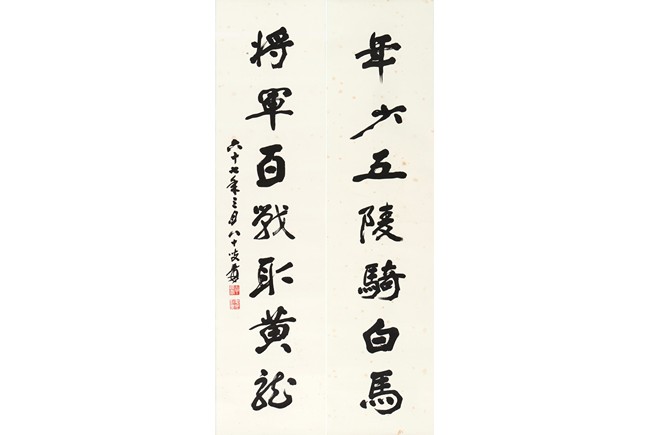 年少五陵騎白馬
將軍百戰取黃龍
六十七年三月八十叟爰